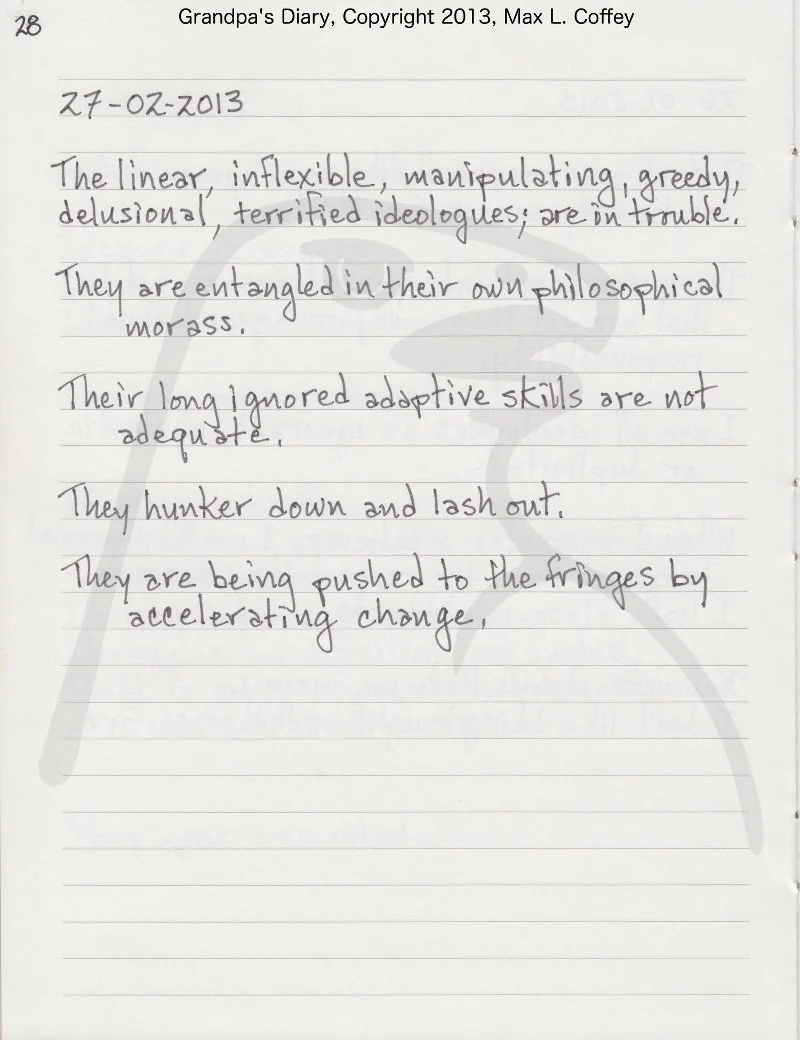 Grandpa's Diary, Copyright 2013, Max L. Coffey
28
27-02-2013
The linear, inflexible, manipulating, greedy,
delusional, terrified ideologues; are in trouble.
They are entangled in their own philosophical
morass.
Their long ignored adaptive skills are not
adequate.
They hunker down and lash out.
They are being pushed to the fringes by
accelerating change.